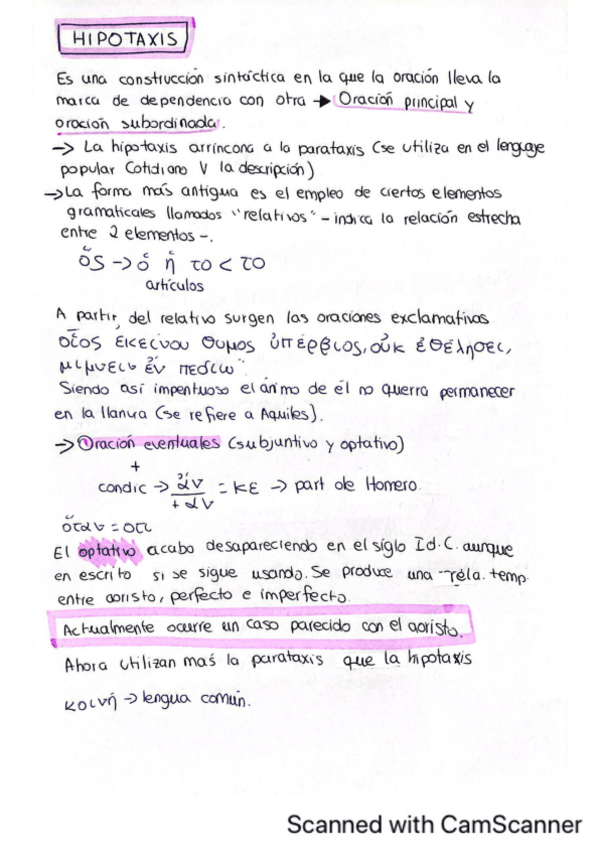 HIPOTAXIS
Es una construcción sintáctica en la que la oración lleva la
marca de dependencia con otra → Oración principal y
oración subordinada.
→ La hipotaxis arrincona a la parataxis (se utiliza en el lenguaje
popular Cotidiano V la descripción)
→ La forma más antigua es el empleo de ciertos elementos
gramaticales llamados "relativos" - indica la relación estrecha
entre 2 elementos -.
ὅς → ὁ ἡ το < το
artículos
A partir, del relativo surgen las oraciones exclamativas
οἷος ἐκείνου θυμος ὑπέρβιος, οὐκ ἐθέλησει,
μιμνειν ἐν πεδιω"
Siendo así impentuoso el ánimo de él no querra permanecer
en la llanura (se refiere a Aquiles).
→ Oración eventuales (subjuntivo y optativo)
+
condic → ἄν = κε → part de Homero.
+ αν
ὅταν = οτι
El optativo acabo desapareciendo en el siglo I d.C. aunque
en escrito si se sigue usando. Se produce una rela. temp
entre aoristo, perfecto e imperfecto.
Actualmente ocurre un caso parecido con el aoristo.
Ahora utilizan más la parataxis que la hipotaxis
κοινή → lengua común.
Scanned with CamScanner